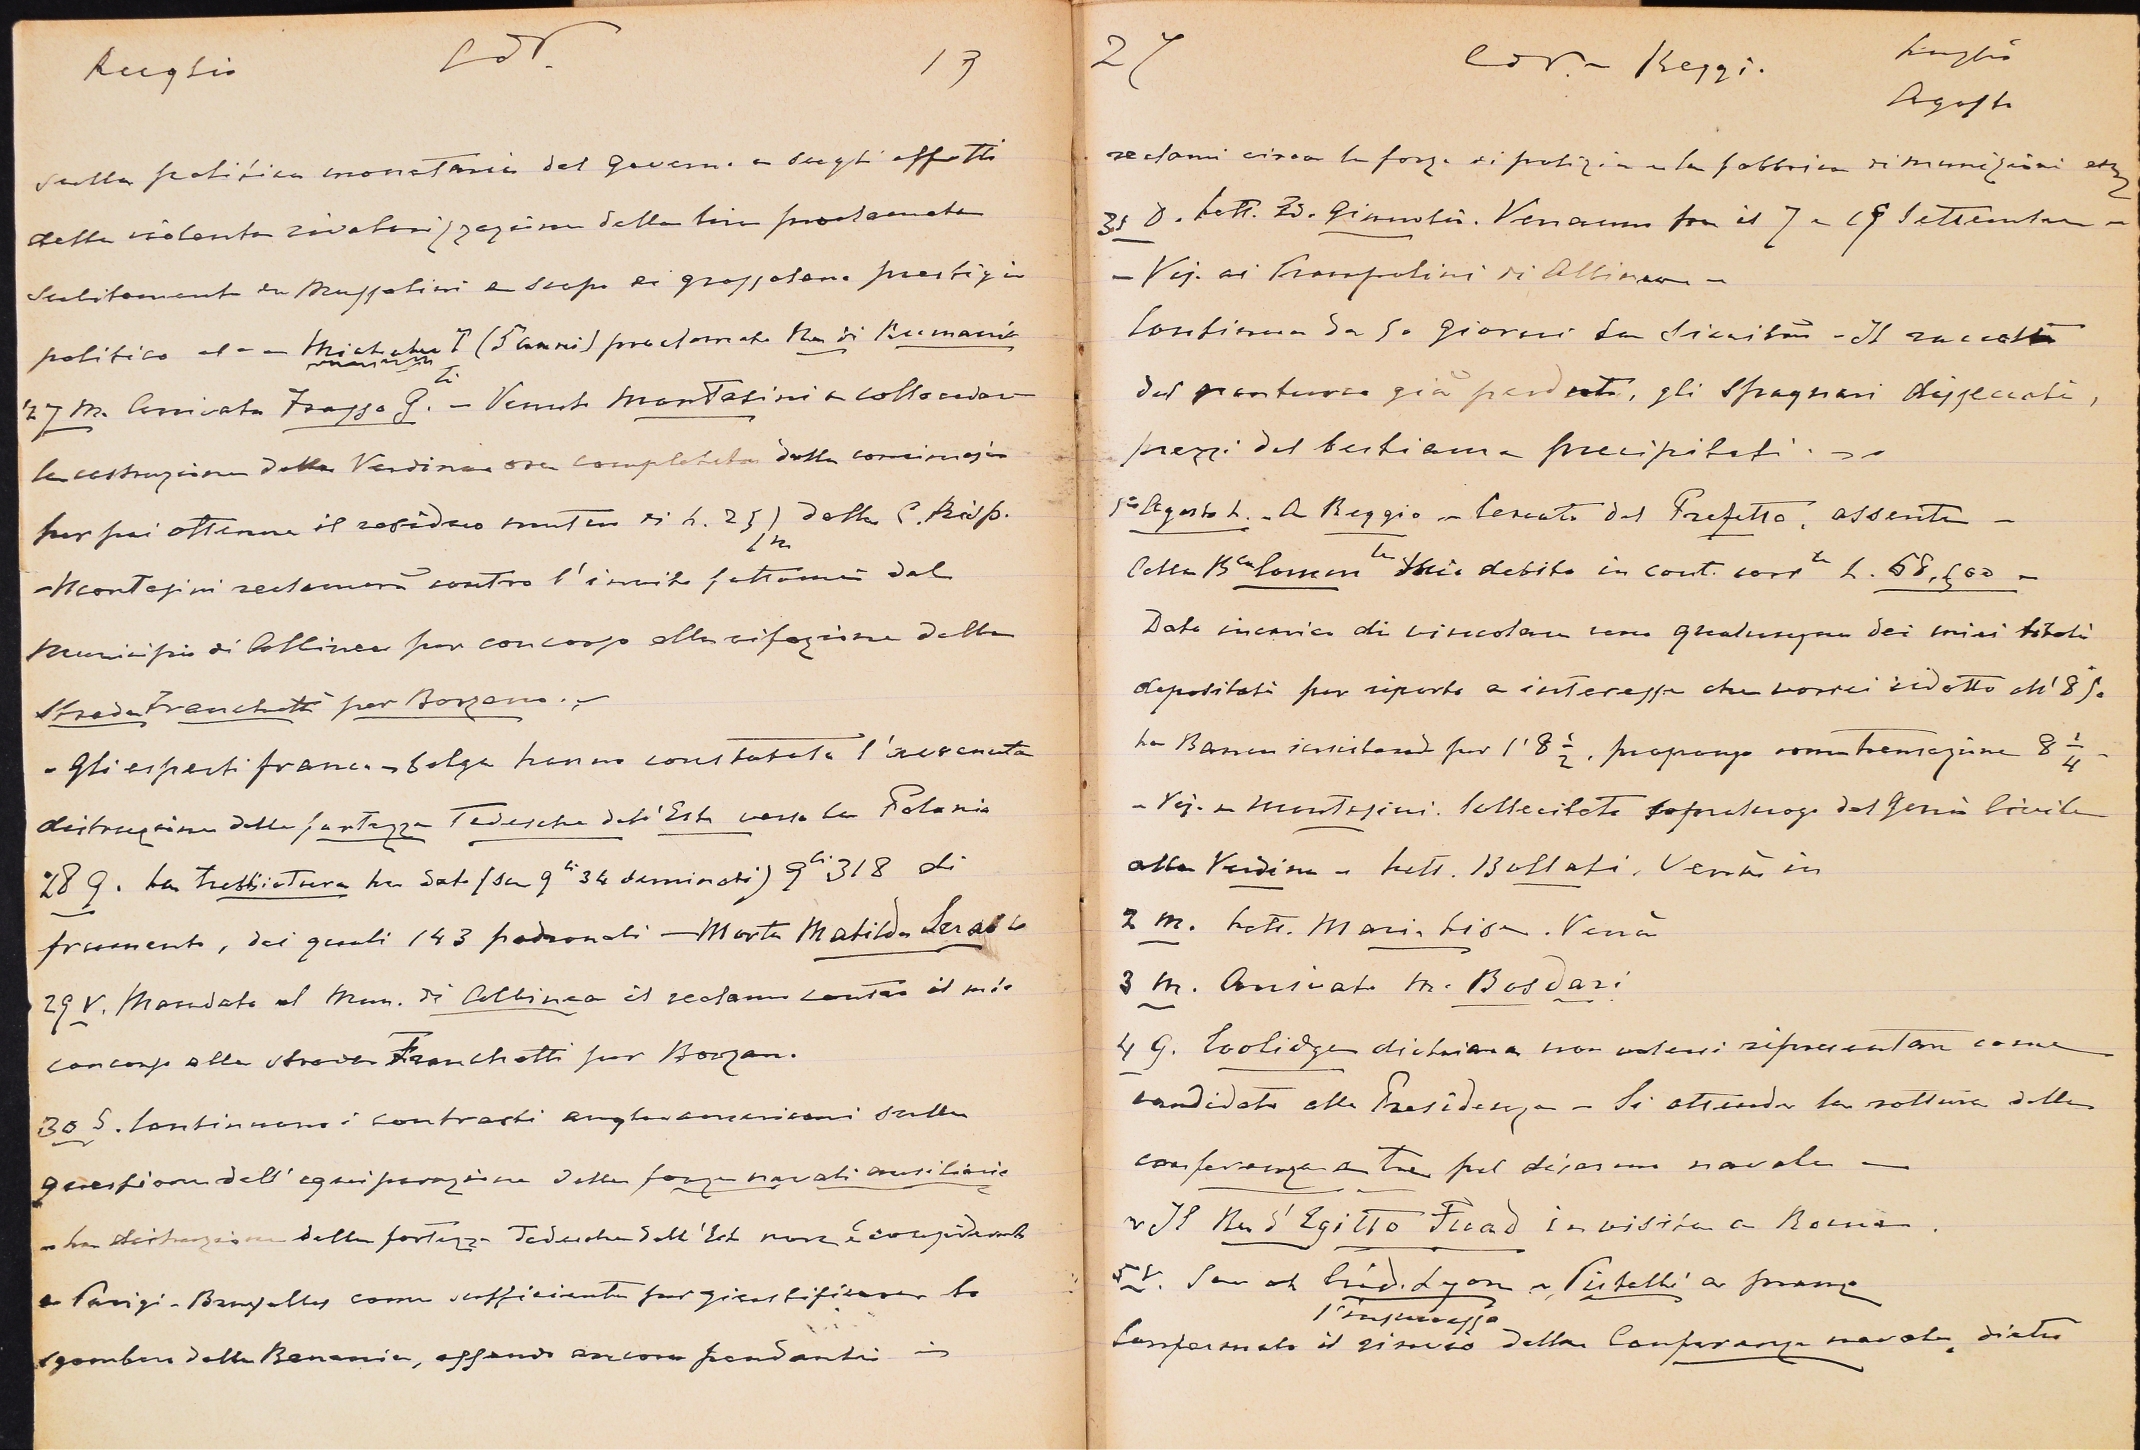 Luglio CdV. 19
sulla politica monetaria del governo e sugli effetti
della violenta rivalorizzazione della lira proclamata
subitamente da Mussolini a scopo di grossolano prestigio
politico al - - Michele I (5 anni) proclamato Re di Rumania
27 M. Arrivata Frassa G.ti - Venuto Montasini a collaudare
la costruzione della Verdina ora completata dalla comincia
per poi ottenere il residuo mutuo di L. 25/m dalla C. Risp.
- Montasini reclamerà contro l'invito fattomi dal
Municipio di Albinea per concorso alla rifazione della
Strada Franchetti per Borzano. -
- Gli esperti franco-belga hanno constatata l'avvenuta
distruzione delle fortezze Tedesche dell'Est verso la Polonia
28 G. La trebbiatura ha dato (su q.li 34 seminati) q.li 318 di
frumento, dei quali 143 padronali - Morta Matilde Serao
29 V. Mandato al Mun. di Albinea il reclamo contro il mio
concorso alla strada Franchetti per Borzano.
30 S. Continuano i contrasti anglo americani sulla
questione dell'equiparazione delle forze navali ausiliarie
- La distruzione delle fortezze Tedesche dell'Est non è considerata
a Parigi - Bruxelles come sufficiente per giustificare lo
sgombero della Renania, essendo ancora pendenti i
27 CdV. - Reggi. Luglio
Agosto
reclami circa la forza di polizia e la fabbrica di munizioni
31 D. Lett. Giannolii. Verranno fra il 7 e 15 Settembre -
- Vis. ai Prampolini di Albinea -
Continua da 50 giorni la siccità - Il raccolto
del granturco già perduto, gli spagnari disseccati,
prezzi del bestiame precipitati. - -
1° Agosto L. - A Reggio - Cercato del Prefetto, assente -
Alla B.ca Comm.le Mio debito in cont. corr.te L. 68,500 -
Dato incarico di vincolare uno qualunque dei miei titoli
depositati per riporto a interesse che vorrei ridotto all'8%
La Banca insistendo per l'8 1/2, propongo come transazione 8 1/4 -
- Vis. a Montasini. Sollecitato sopraluogo del Genio Civile
alla Verdina - Lett. Bollati. Verrà in
2 M. Lett. Maria Lisa. Verrà
3 M. Arrivato M. Bosdari
4 G. Coolidge dichiara non volersi ripresentare come
candidato alla Presidenza - Si attende la rottura della
conferenza a tre pel disarmo navale -
- Il Re d'Egitto Fuad in visita a Roma.
5 V. Sem al Créd. Lyon - Pistelli a pranzo
l'insuccesso
Confermato il rinvio della Conferenza navale, dietro